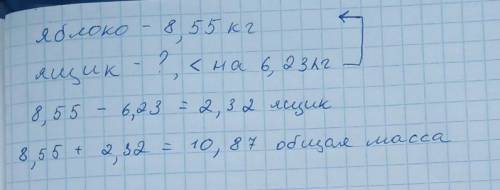 яблоко - 8,55 кг
ящик - ?, < на 6,23 кг
8,55 - 6,23 = 2,32 ящик
8,55 + 2,32 = 10,87 общая масса